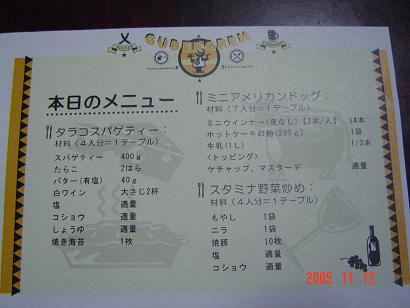 CUB EN GREN
本日のメニュー
タラコスパゲティー：
材料（４人分＝１テーブル）
スパゲティー 400ｇ
たらこ 2はら
バター(有塩) 40ｇ
白ワイン 大さじ2杯
塩 適量
コショウ 適量
しょうゆ 適量
焼き海苔 1枚
ミニアメリカンドッグ：
材料（７人分＝１テーブル）
ミニウインナー(皮なし)【2本/人】 14本
ホットケーキの粉(200ｇ) 1袋
牛乳(1Ｌ) 1/3本
<トッピング>
ケチャップ、マスタード 適量
スタミナ野菜炒め：
材料（４人分＝１テーブル）
もやし 1袋
ニラ 1袋
焼豚 10枚
塩 適量
コショウ 適量
2005 11 12